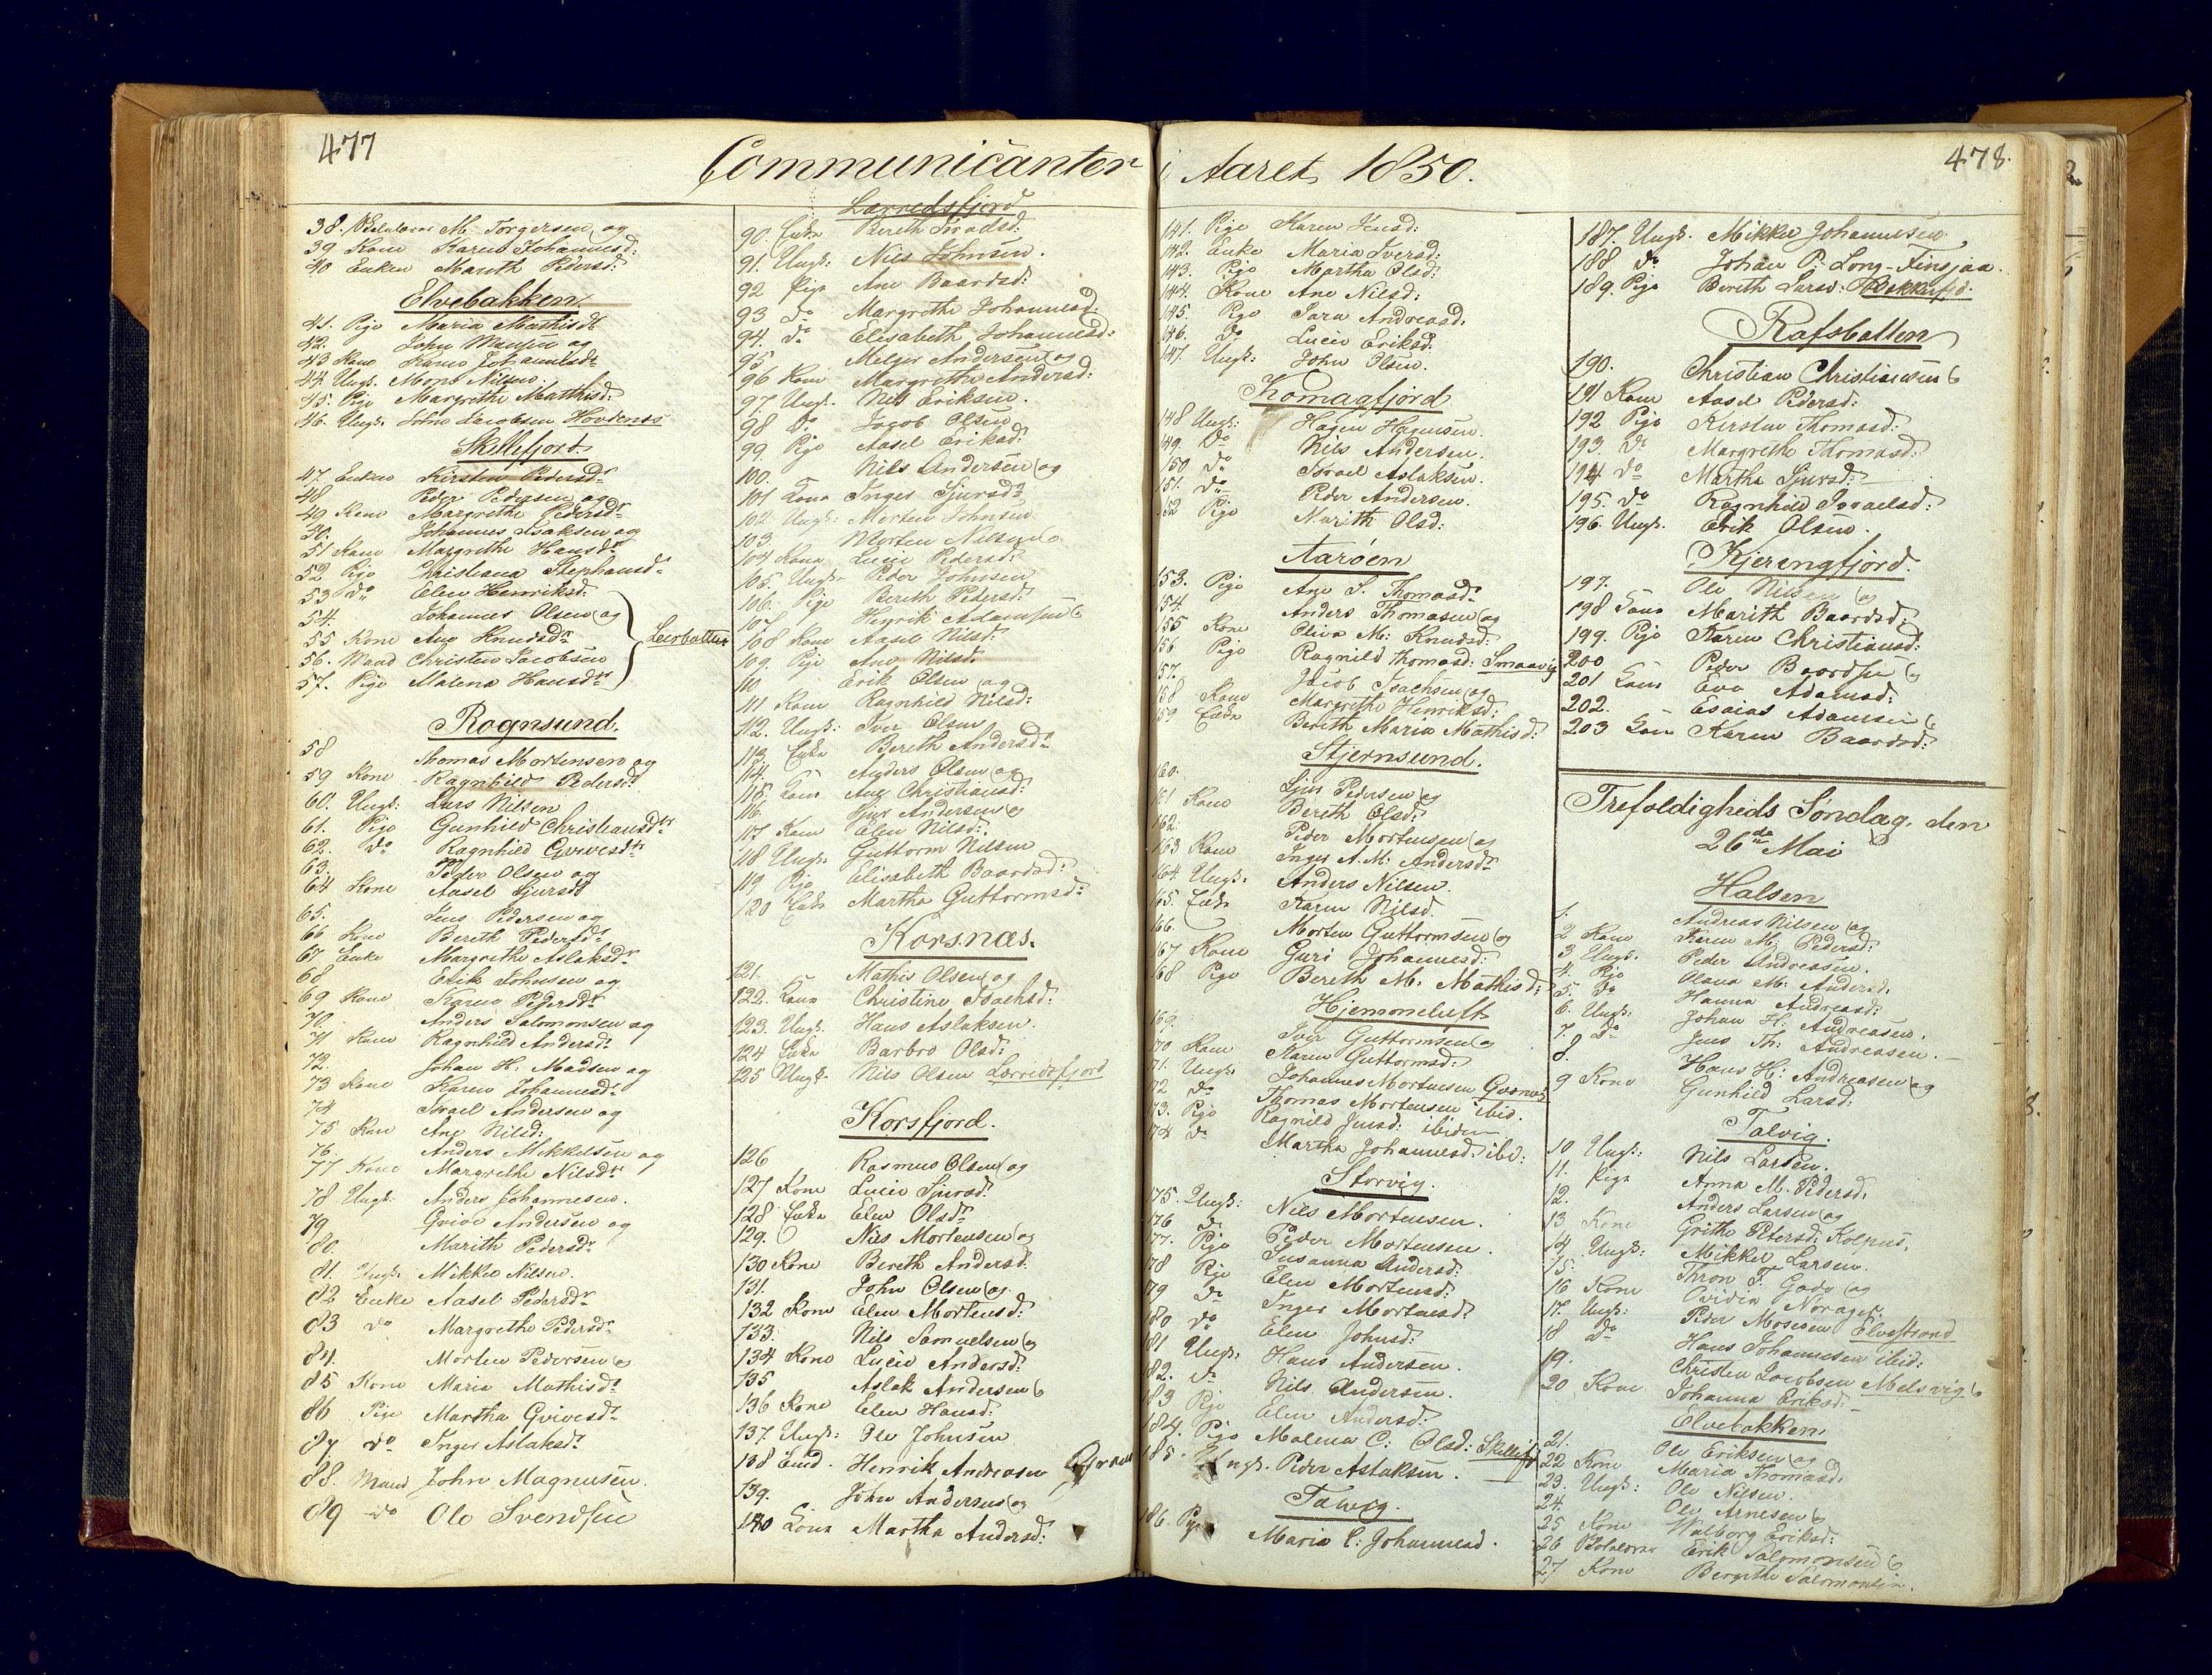 477
Communicanter
38. M. Torgersen og
39 Kone Karen Johannesd:
40 Enken Marith Pedersd:
Elvebakken
41. Pige Maria Mathisdr
42. John og
43 Kone Karen Johannesdr
44. Ungk. Mons Nilsen.
45. Pige Margrethe Matthisd:
46. Ungk. John Jacobsen
Skillefjord
47. Enken Kirsten Pedersdr
48 Peder Pedersen og
49 Kone Margrethe Pedersdr
50. Johannes Isaksen og
51 Kone Margrethe Hansdr
52 Pige Christiana Stephansdr
53 Do Elen Henriksd:
54. Johannes Olsen og
55 Kone Ane Knudsdr
56. Mand Christen Jacobsen
57. Pige Malena Hansdr
Leerbotten
Rognsund.
58 Thomas Mortensen og
59 Kone Ragnhild Pedersdr
60. Ungk: Lars Nilsen
61. Pige Gunhild Christiansdr
62. Do Ragnhild Gvivesdr
63. Peder Olsen og
64 Kone Aasel Sjursdr
65. Jens Pedersen og
66 Kone Bereth Pedersdr
67 Enke Margrethe Aslaksdr
68 Erik Johnsen og
69 Kone Karen Pedersdr
70. Anders Salomonsen og
71 Kone Ragnhild Andersdr
72. Johan H. Madsen og
73 Kone Karen Johannesdr
74 Israel Andersen og
75 Kone Ane Nilsd:
76. Anders Mikkelsen og
77 Kone Margrethe Nilsdr
78 Ungk. Anders Johannesen.
79 Gvive Andersen og
80. Marith Pedersdr
81. Ungk. Mikkel Nilsen.
82 Enke Aasel Pedersdr
83 do Margrethe Pedersdr
84. Morten Pedersen og
85 Kone Maria Mathisdr
86 Pige Martha Gvivesdr
87 do Inger Aslaksdr
88. Mand John Magnusen.
89 do Ole Svendsen
Lerredsfjord
90. Enke Bereth
91. Ungk: Nils Johnsen.
92 Pige Ane Baardsd:
93 do Margrethe Johannesd:
94. do Elisabeth Johannesd:
95 Melger Andersen og
96 Kone Margrethe Andersd:
97. Ungk. Nils Eriksen.
98 do Jacob Olsen
99. Pige Aasel Eriksd:
100. Nils Andersen og
101 Kone Inger Sjursdr
102. Ungk. Morten Johnsen
103. Morten Nilsen og
104 Kone Lucie Pedersd:
105. Ungk. Peder Johnsen
106. Pige Bereth Pedersd:
107 Henrik Adamsen og
108 Kone Aasel Nilsd:
109. Pige Ane Nilsd:
110 Erik Olsen og
111 Kone Ragnhild Nilsd:
112. Ungk: Iver Olsen
113. Enke Bereth Andersdr
114. Anders Olsen og
115. Kone Ane Christiansd:
116. Sjur Andersen og
117 Kone Elen Nilsd:
118 Ungk: Guttorm Nilsen
119 Pige Elisabeth Baardsd:
120 Enke Martha Guttormsd:
Korsnæs.
121. Mathis Olsen og
122. Kone Christine Isachsd:
123. Ungk. Hans Aslaksen.
124 Enke Barbro Olsd:
125 Ungk. Nils Olsen Lerredsfjord
Korsfjord.
126 Rasmus Olsen og
127 Kone Lucie Sjursdr
128 Enke Elen Olsdr
129. Nils Mortensen og
130 Kone Bereth Andersd.
131. John Olsen og
132 Kone Elen Mortensd:
133. Nils Samuelsen og
134 Kone Lucie Andersd:
135 Aslak Andersen og
136 Kone Elen Hansd:
137. Ungk: Ole Johnsen
138 Henrik Andreasen
139. John Andersen og
140 Kone Martha Andersd:
i Aaret 1850.
478.
141. Pige Karen Jensd:
142. Enke Maria Iversd:
143. Pige Martha Olsd:
144. Kone Ane Nilsd:
145. Pige Sara Andreasd.
146. Do Lucie Eriksd.
147. Ungk: John Olsen.
Komagfjord
148 Ungk: Hagen Hagensen.
149. Do Nils Andersen.
150 Do Israel Aslaksen.
151. Do Peder Andersen.
152 Pige Marith Olsd:
Aarøen
153. Pige Ane S. Thomasdr
154. Anders Thomasen og
155 Kone Oliva M. Knudsd:
156 Pige Ragnild Thomasd: Smaavig
157. Jacob Isachsen og
158 Kone Margrethe Henriksd:
159 Enke Bereth Maria Mathisd:
Stjernsund.
160. Sjur Pedersen og
161 Kone Bereth Olsd.
162. Peder Mortensen og
163 Kone Inger A. M. Andersdr
164 Ungk. Anders Nilsen.
165. Enke Karen Nilsd.
166. Morten Guttormsen og
167 Kone Guri Johannesd:
168 Pige Bereth M. Mathisd:
Hjemmeluft
169. Iver Guttormsen og
170 Kone Karen Guttormsd:
171. Ungk. Johannes Mortensen
172. do Thomas Mortensen ibid.
173. Pige Ragnild Jensd: ibidem
174 do Martha Johannesd. ibid:
Storvig.
175. Ungk: Nils Mortensen.
176 do Peder Mortensen.
177. Pige Susanna Andersd:
178 Pige Elen Mortensd:
179 do Inger Mortensd:
180 do Elen Johnsd:
181 Ungk. Hans Andersen.
182. do Nils Andersen.
183 Pige Elen Andersd:
184. Pige Malena C: Olsd: Skillefj
185. Ungk. Peder Aslaksen.
Talvig.
186. Pige Maria C: Johannesd.
187. Ungk. Mikkel Johannesen
188 do Johan P. Long-Finsjaa.
189. Pige Bereth Larsd:
Rafsbotten
190. Christian Christiansen og
191 Kone Aasel Pedersd:
192 Pige Kirsten Thomasd:
193. do Margrethe Thomasd:
194 do Martha Sjursd:
195. do Ragnhild Israelsd:
196. Ungk. Erik Olsen.
Kjeringfjord.
197. Ole Nilsen og
198 Kone Marith Baardsd:
199. Pige Karen Christiansd:
200 Peder Baardsen og
201 Kone Eva Adamsd:
202. Esaias Adamsen og
203 Kone Karen Baardsd:
Trefoldigheds Søndag, den
26de Mai
Halsen
1. Andreas Nilsen og
2 Kone Karen M. Pedersd:
3. Ungk. Peder Andreasen.
4. Pige Olava M. Andersd.
5. do Hanna Andreasd:
6. Ungk: Johan H: Andreasen.
7. do Jens Th: Andreasen.
8. Hans H: Andreasen og
9 Kone Gunhild Larsd:
Talvig.
10 Ungk: Nils Larsen.
11. Pige Anna M. Pedersd.
12. Anders Larsen og
13 Kone Grithe Petersd:
14 Ungk: Mikkel Larsen.
15. Thron og
16 Kone
17. Ungk: Peder Mosesen Elvestrand
18 do Hans Johannesen ibid:
19. Christen Jacobsen Melsvig og
20 Kone Johanna Eriksd:
Elvebakken
21. Ole Eriksen og
22 Kone Maria Thomasd.
23. Ungk: Ole Nilsen.
24. Ole Arnesen og
25 Kone Walborg Eriksd:
26 Erik Salomonsen og
27 Kone Bergithe Salomonsen.